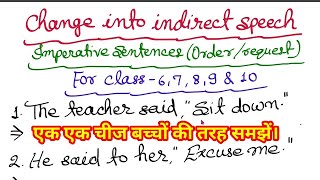 Change into indirect speech
Imperative Sentences (Order/request)
For class-6,7,8,9 & 10
1. The teacher said, "Sit down."
⇒ एक एक चीज बच्चों की तरह समझें।
2. He said to her, "Excuse me."
⇒